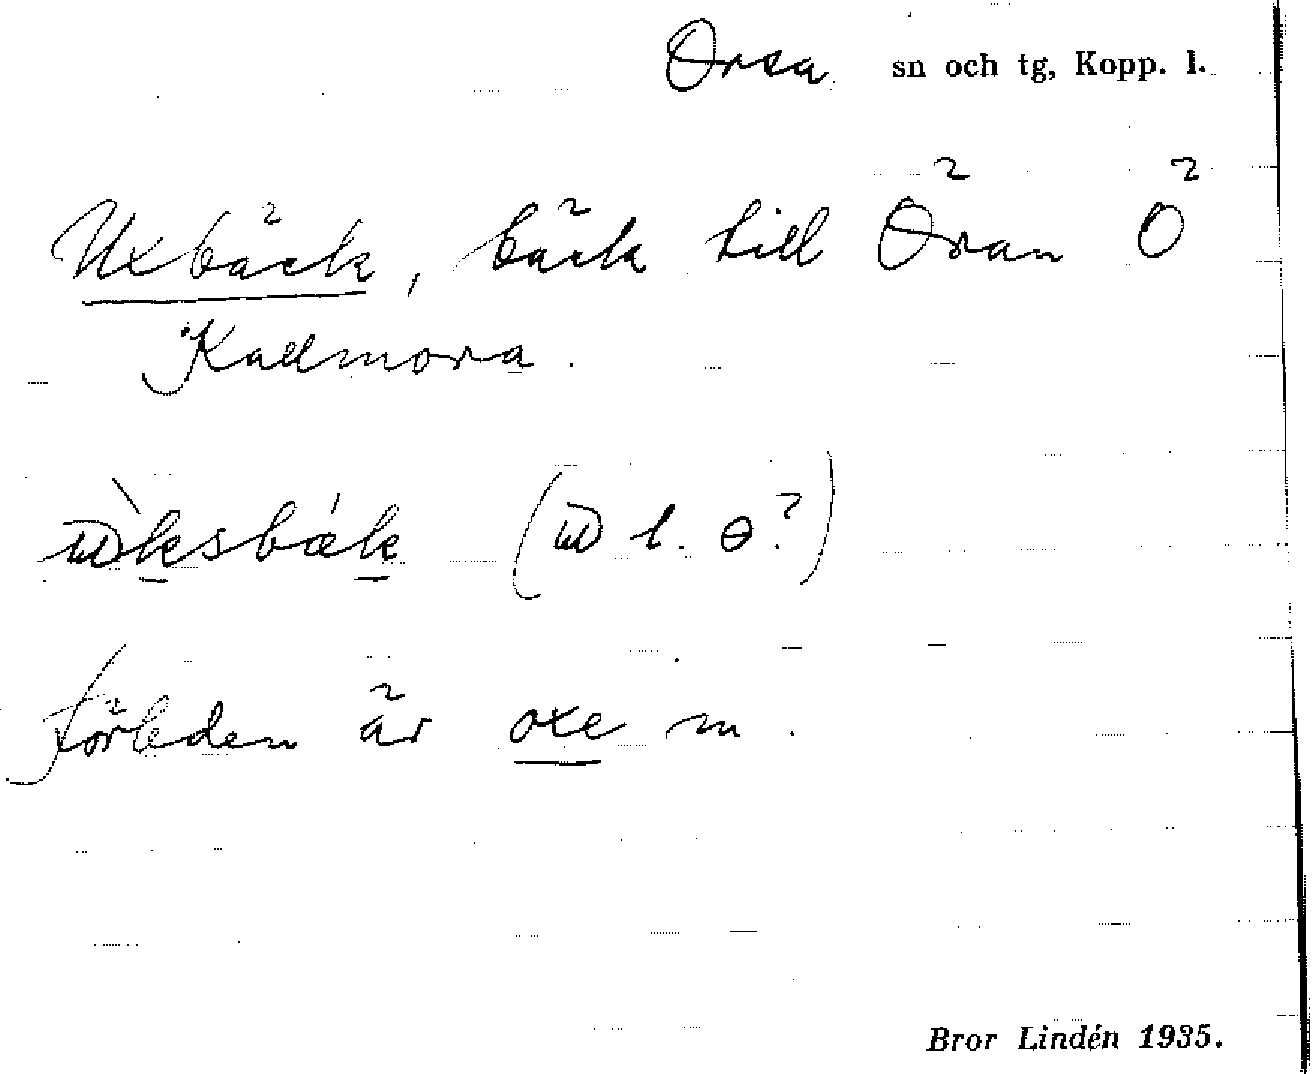 Orsa sn och tg, Kopp. l.
Uxbäck, bäck till Öran Ö
Kallmora.
ɯ̀ksbǽk (ɯ l. ɵ?)
förleden är oxe m.
Bror Lindén 1935.